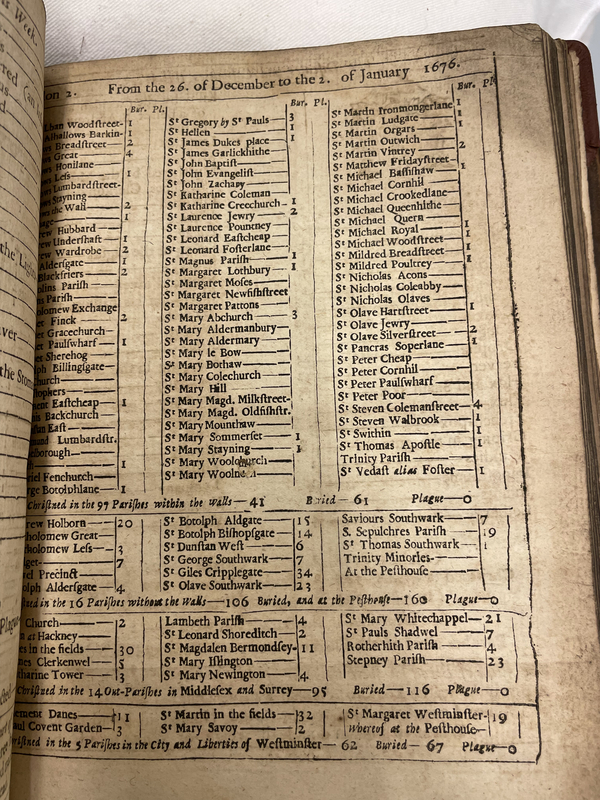 on 2. From the 26. of December to the 2. of January 1676.
Bur. Pl.
lban Woodſtreet- 1
Alhallows Barkin- 1
Breadſtreet— 2
Great— 4
Honilane
Leſs— 1
Lumbardſtreet-
Stayning
the Wall 2
Hubbard
Underſhaft 1
Wardrobe 2
Alderſgate 1
Blackfriers 2
Pariſh
Pariſh
olomew Exchange
Finck— 2
Gracechurch—
Paulſwharf— 1
Sherehog
Billingſgate
hurch—
ent Eaſtcheap 1
Backchurch—
Eaſt—
und Lumbardſtr.
borough—
1
riel Fenchurch—
rge Botolphlane 1
Bur. Pl.
St Gregory by St Pauls— 3
St Hellen— 1
St James Dukes place 1
St James Garlickhithe
St John Baptiſt—
St John Evangeliſt—
St John Zachary
St Katharine Coleman
St Katharine Creechurch— 1
St Laurence Jewry— 2
St Laurence Pountney
St Leonard Eaſtcheap
St Leonard Foſterlane
St Magnus Pariſh— 1
St Margaret Lothbury 1
St Margaret Moſes—
St Margaret Newfiſhſtreet
St Margaret Pattons
St Mary Abchurch— 3
St Mary Aldermanbury
St Mary Aldermary
St Mary le Bow—
St Mary Bothaw—
St Mary Colechurch
St Mary Hill
St Mary Magd. Milkſtreet-
St Mary Magd. Oldfiſhſtr.
St Mary Mounthaw—
St Mary Sommerſet— 1
St Mary Stayning— 1
St Mary Woolchurch
St Mary Woolnoth
Bur. Pl.
St Martin Ironmongerlane 1
St Martin Ludgate— 1
St Martin Orgars— 1
St Martin Outwich
St Martin Vintrey— 2
St Matthew Fridayſtreet—
St Michael Baſſiſhaw— 1
St Michael Cornhil
St Michael Crookedlane
St Michael Queenhithe
St Michael Quern— 1
St Michael Royal— 1
St Michael Woodſtreet— 1
St Mildred Breadſtreet— 1
St Mildred Poultrey— 1
St Nicholas Acons—
St Nicholas Coleabby—
St Nicholas Olaves—
St Olave Hartſtreet— 1
St Olave Jewry—
St Olave Silverſtreet— 2
St Pancras Soperlane— 1
St Peter Cheap—
St Peter Cornhil—
St Peter Paulſwharf—
St Peter Poor—
St Steven Colemanſtreet— 4
St Steven Walbrook— 1
St Swithin— 1
St Thomas Apoſtle— 1
Trinity Pariſh—
St Vedaſt alias Foſter— 1
Chriſtned in the 97 Pariſhes within the walls— 41 Buried— 61 Plague—0
rew Holborn— 20
tholomew Great—
tholomew Leſs— 3
get— 7
el Precinct—
olph Alderſgate— 4
St Botolph Aldgate— 15
St Botolph Biſhopſgate— 14
St Dunſtan Weſt— 6
St George Southwark— 7
St Giles Cripplegate— 34
St Olave Southwark— 23
Saviours Southwark— 7
S. Sepulchres Pariſh— 19
St Thomas Southwark— 1
Trinity Minories—
At the Peſthouſe—
ned in the 16 Pariſhes without the Walls—106 Buried, and at the Peſthouſe—160 Plague—0
Church— 2
at Hackney—
es in the fields— 30
Clerkenwel— 5
harine Tower— 3
Lambeth Pariſh— 4
St Leonard Shoreditch— 2
St Magdalen Bermondſey- 11
St Mary Iſlington—
St Mary Newington— 4
St Mary Whitechappel— 21
St Pauls Shadwel— 7
Rotherhith Pariſh— 4
Stepney Pariſh— 23
Chriſtned in the 14 Out-Pariſhes in Middleſex and Surrey—95 Buried—116 Plague—0
ement Danes— 11
aul Covent Garden— 3
St Martin in the fields— 32
St Mary Savoy— 2
St Margaret Weſtminſter- 19
Whereof at the Peſthouſe—
riſtned in the 5 Pariſhes in the City and Liberties of Weſtminſter— 62 Buried— 67 Plague—0